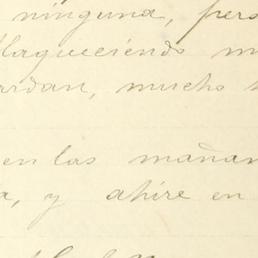 ninguna, pers
flaqueciendo m
ardan, mucho
en las mañan
a, y ahire en